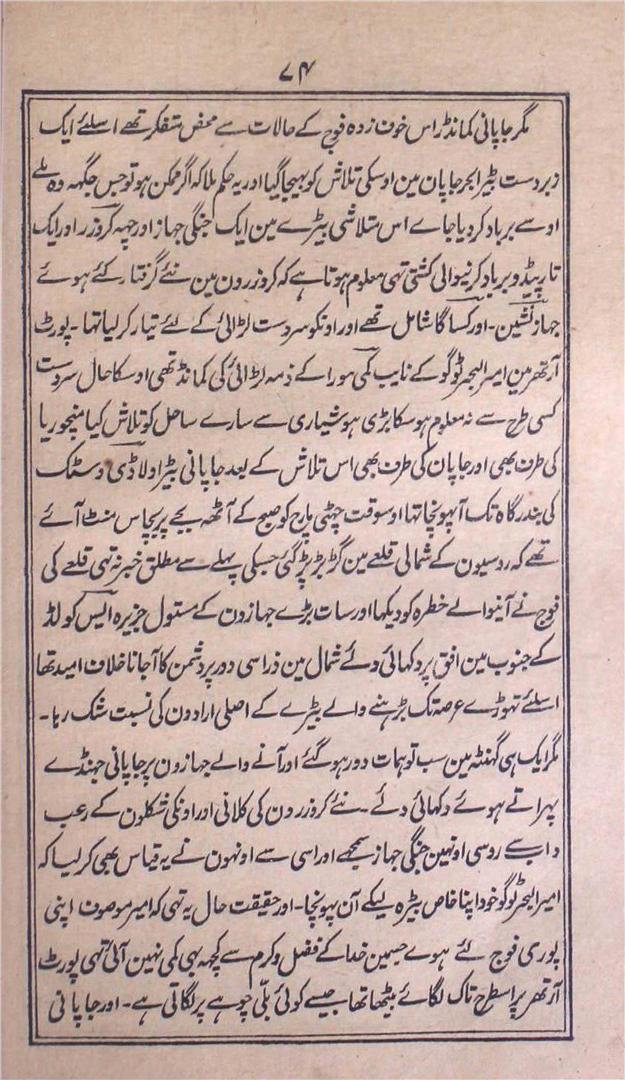 ۷۴
مگر جاپانی کمانڈر اس خوف زدہ فوج کے حالات سے محض متفکر تھے اسلئے ایک
زبردست بیڑا بحر جاپان مین اوسکی تلاش کو بہیجا گیا اور یہ حکم ملا کہ اگر ممکن ہو تو جس جگہہ وہ ملے
اوسے برباد کر دیا جاے اس متلاشی بیڑے مین ایک جنگی جہاز اور چہہ کروزر اور ایک
تارپیڈو برباد کرنیوالی کشتی تہی معلوم ہوتا ہے کہ کروزرون مین نئے گرفتار کئے ہوئے
جہاز نشین۔ اور کساگا شامل تھے اور اونکو سردست لڑائی کے لئے تیار کر لیا تہا۔ پورٹ
آرتھر مین امیر البحر ٹوگو کے نایب کمی مورا کے ذمہ لڑائی کی کمانڈ تھی اوسکا حال سردست
کسی طرح سے نہ معلوم ہو سکا بڑی ہوشیاری سے سارے ساحل کو تلاش کیا منچوریا
کی طرف بھی اور جاپان کی طرف بھی اس تلاش کے بعد جاپانی بیڑا ولاڈی وسٹک
کی بندرگاہ تک آپہونچا تہا اوسوقت چہٹی مارچ کو صبح کے آٹھہ بجے پر پچاس منٹ آئے
تھے کہ روسیون کے شمالی قلعے مین گڑبڑ پڑ گئی جسکی پہلے سے مطلق خبر نہ تہی قلعے کی
فوج نے آنیوالے خطرہ کو دیکہا اور سات بڑے جہازون کے مستول جزیرہ ایس کولڈ
کے جنوب مین افق پر دکہائی دئے شمال مین ذرا سی دور پر دشمن کا آجانا خلاف امید تھا
اسلئے تہوڑے عرصہ تک بڑہنے والے بیڑے کے اصلی ارادون کی نسبت شک رہا۔
مگر ایک ہی گہنٹہ مین سب توہمات دور ہو گئے اور آنے والے جہازون پر جاپانی جہنڈے
پہراتے ہوئے دکہائی دئے۔ نئے کروزرون کی کلانی اور اونکی شکلون کے رعب
داب سے روسی اونہین جنگی جہاز سمجھے اور اسی سے اونہون نے یہ قیاس بھی کر لیا کہ
امیر البحر ٹوگو خود اپنا خاص بیڑہ لیکے آن پہونچا۔ اور حقیقت حال یہ تہی کہ امیر موصوف اپنی
پوری فوج لئے ہوے جسمین خدا کے فضل و کرم سے کچہہ بہی کمی نہین آئی تہی پورٹ
آرتھر پر اسطرح تاک لگائے بیٹھا تھا جیسے کوئی بلی چوہے پر لگاتی ہے۔ اور جاپانی